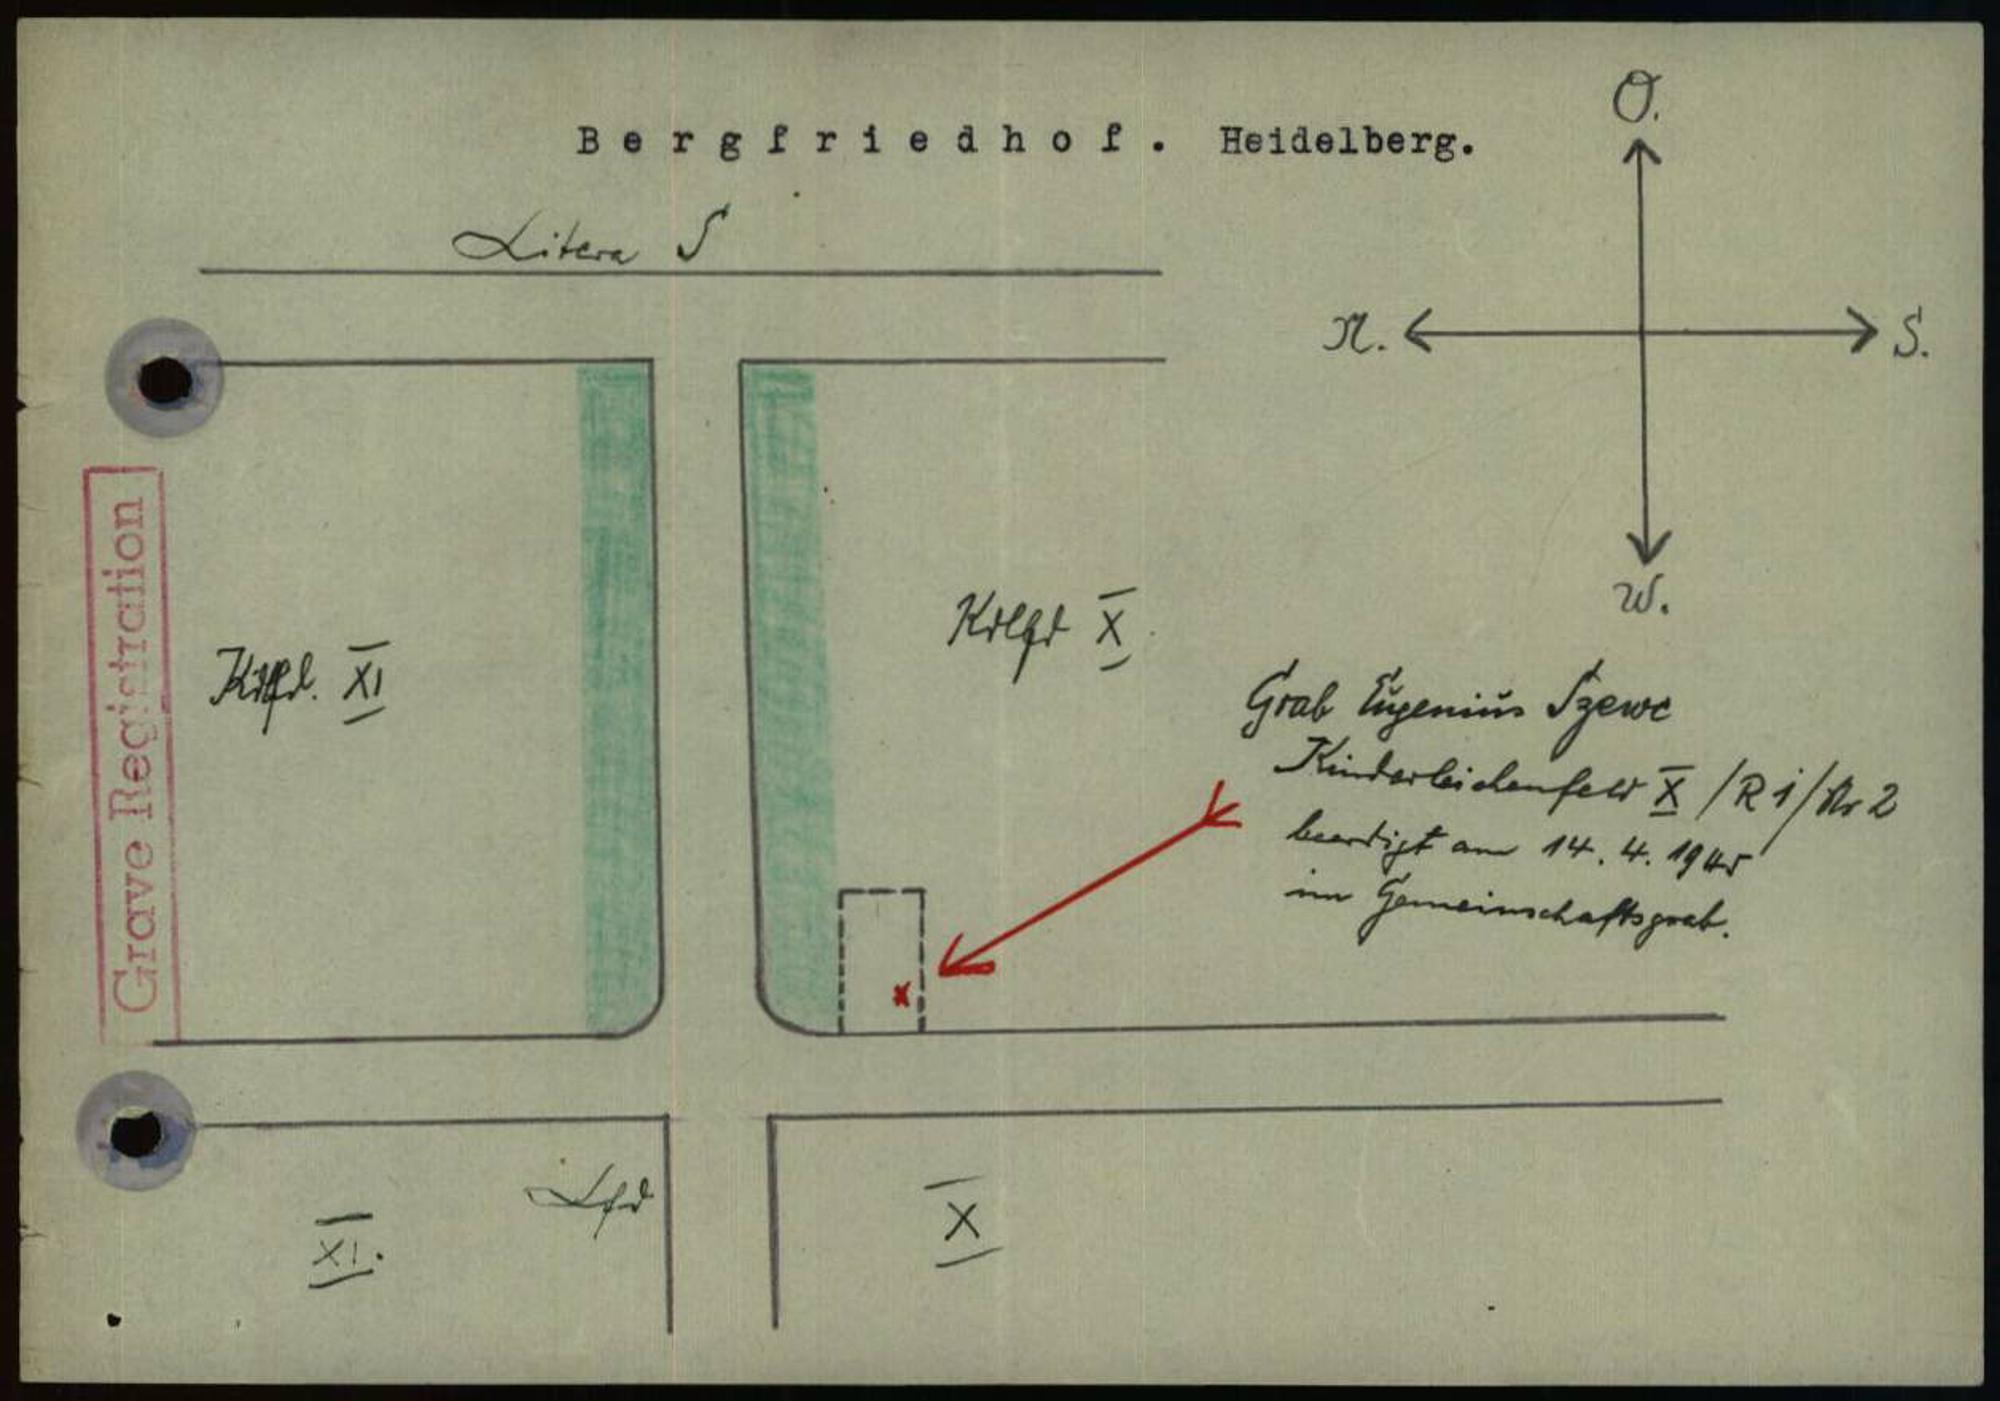 O.
B e r g f r i e d h o f . Heidelberg.
Litera S
N.
S.
W.
Grave Registration
Kdlfd. XI
Kdlfd X
Grab Eugenius Szewc
Kinderleichenfeld X / R 1 / Nr 2
beerdigt am 14. 4. 1945
im Gemeinschaftsgrab.
Lfd
XI.
X